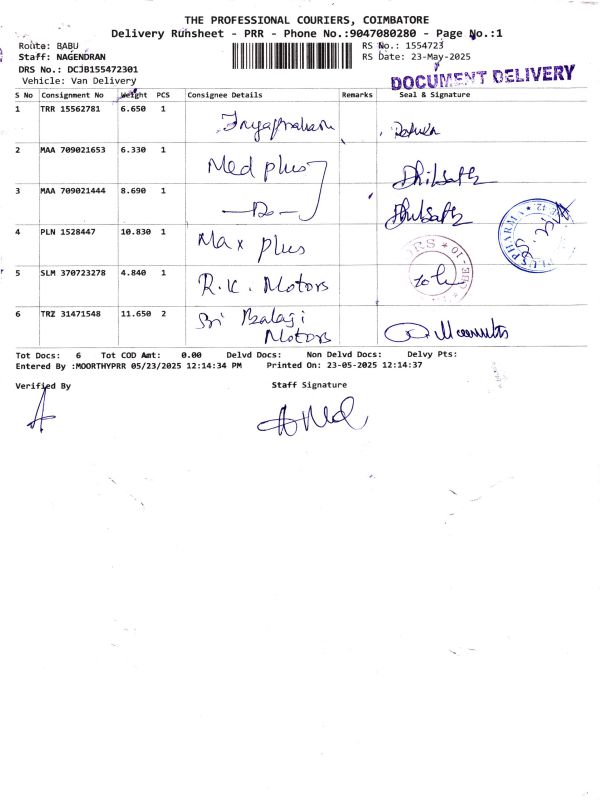 THE PROFESSIONAL COURIERS, COIMBATORE
Delivery Runsheet - PRR - Phone No.:9047080280 - Page No.:1
Route: BABU
RS No.: 1554723
Staff: NAGENDRAN
RS Date: 23-May-2025
DRS No.: DCJB155472301
Vehicle: Van Delivery
DOCUMENT DELIVERY
S No Consignment No Weight PCS Consignee Details Remarks Seal & Signature
1 TRR 15562781 6.650 1
2 MAA 709021653 6.330 1 Med plus
3 MAA 709021444 8.690 1 —Do—
4 PLN 1528447 10.830 1 Max plus
5 SLM 370723278 4.840 1 R.K. Motors
6 TRZ 31471548 11.650 2 Sri Balaji
Motors
Tot Docs: 6 Tot COD Amt: 0.00 Delvd Docs: Non Delvd Docs: Delvy Pts:
Entered By :MOORTHYPRR 05/23/2025 12:14:34 PM Printed On: 23-05-2025 12:14:37
Verified By Staff Signature